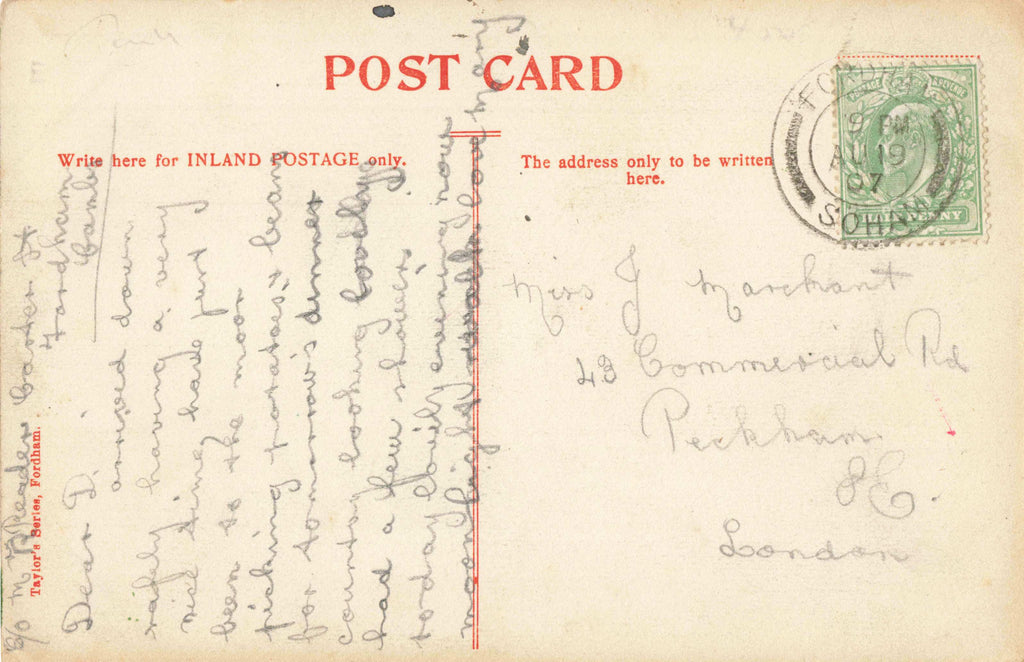 POST CARD
Write here for INLAND POSTAGE only.
The address only to be written
here.
FORDHAM
9 PM
AU 19
07
SOHAM
HALFPENNY
Miss J Marchant
43 Commercial Rd
Peckham
S E.
London
Taylor's Series, Fordham.
C/o Mr Reader Carter St
Fordham
Cambs
Dear D.
arrived down
safely having a very
nice time have just
been to the moor
picking potatoes & beans
for tomorrow's dinner
country looking lovely
had a few showers
today lovely evening now
moonlight love Mary